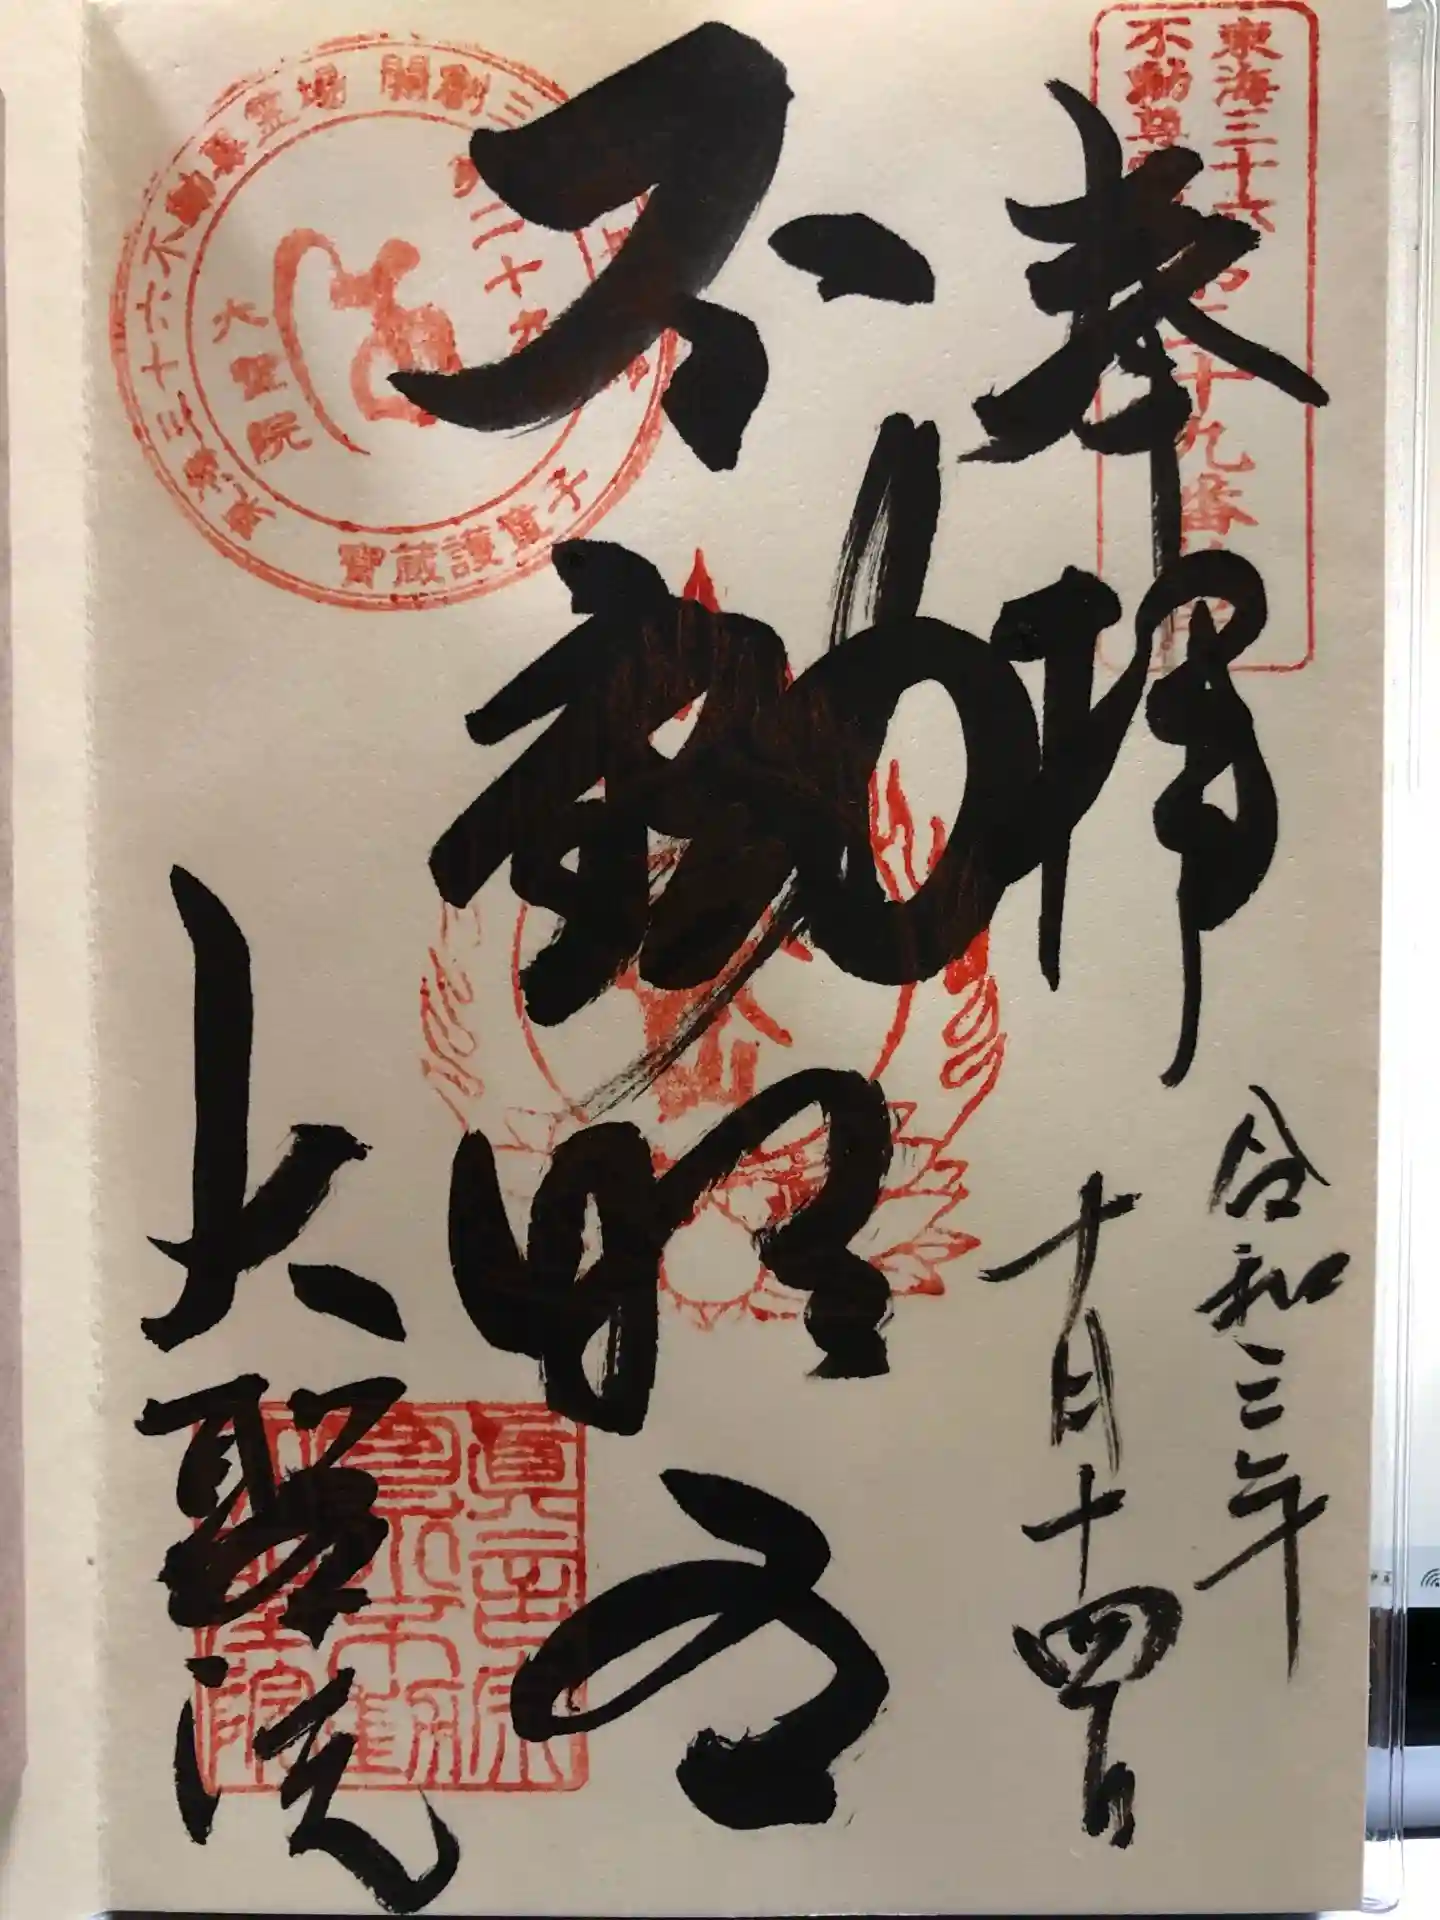 奉拝
令和三年
十月十四日
不動明王
大聖院
東海三十六
不動尊
第二十九番
東海三十六不動尊霊場
開創三
第二十九
大聖院
寶蔵護童子